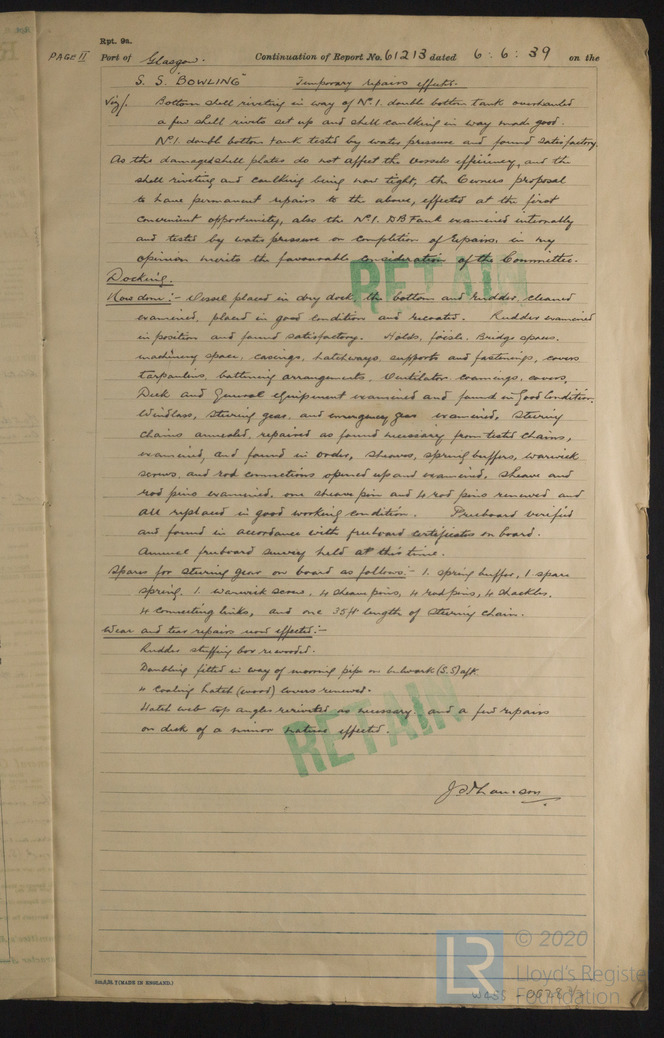 Rpt. 9a.
PAGE II Port of Glasgow. Continuation of Report No. 61213 dated 6 : 6 : 39 on the
S. S. "BOWLING" Temporary repairs effected.
Viz/. Bottom shell riveting in way of No 1. double bottom tank overhauled
a few shell rivets set up and shell caulking in way made good.
No 1. doubl bottom tank tested by water pressure and found satisfactory.
As the damaged shell plates do not affect the vessels efficiency, and the
shell riveting and caulking being now tight, the Owners proposal
to have permanent repairs to the above, effected at the first
convenient opportunity, also the No 1. DB Tank examined internally
and tested by water pressure on completion of repairs, in my
opinion merits the favourable consideration of the Committee.
RETAIN
Docking.
Now done :- Vessel placed in dry dock, the bottom and rudder, cleaned
examined, placed in good condition and recoated. Rudder examined
in position and found satisfactory. Holds, focsle. Bridge spaces.
machinery space, casings, hatchways, supports and fastenings, covers
tarpaulins, battening arrangements. Ventilator coamings, covers,
Deck and General equipment examined and found in Good Condition.
Windlass, steering gear, and emergency gear examined, steering
chains annealed, repaired as found necessary from tested chains,
examined, and found in order, sheaves, spring buffers, warwick
screws, and rod connections opened up and examined, sheave and
rod pins examined, one sheave pin and 4 rod pins renewed and
all replaced in good working condition. Freeboard verified
and found in accordance with freeboard certificates on board.
Annual freeboard survey held at this time.
Spares for steering gear on board as follows :- 1. spring buffer, 1 spare
spring, 1. warwick screw, 4 sheave pins, 4 rod pins, 4 shackles.
4 connecting links, and one 35ft length of steering chain.
Wear and tear repairs now effected :-
Rudder stuffing box rewooded.
Doubling fitted in way of mooring pipe on bulwark (S.S) aft
4 coaling hatch (wood) covers renewed.
Hatch web top angles reriveted as necessary. and a few repairs
on deck of a minor nature effected.
RETAIN
(MADE IN ENGLAND.)
LR © 2020
Lloyd's Register
Foundation